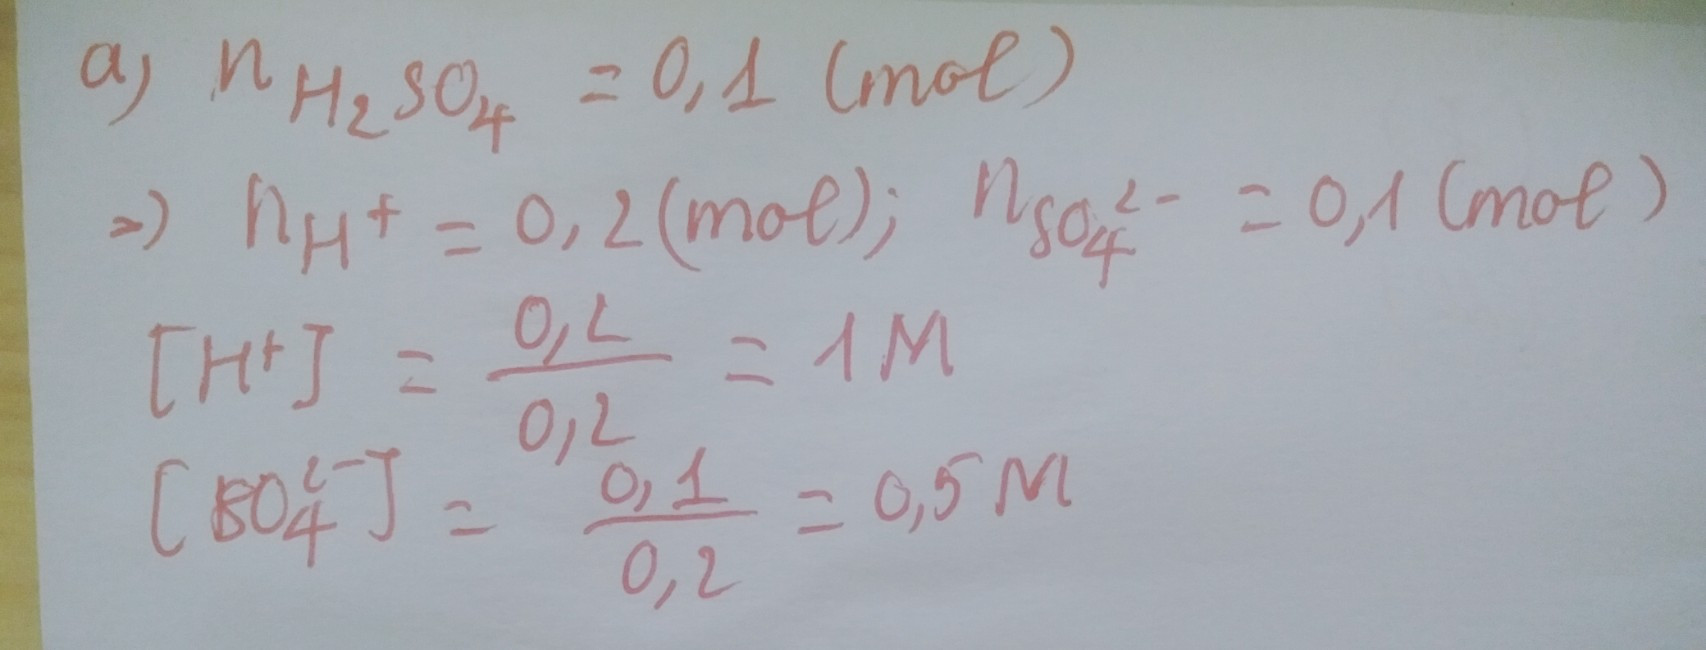 a) n H₂SO₄ = 0,1 (mol)
=> n H⁺ = 0,2 (mol); n SO₄²⁻ = 0,1 (mol)
[H⁺] = 0,2 / 0,2 = 1 M
[SO₄²⁻] = 0,1 / 0,2 = 0,5 M